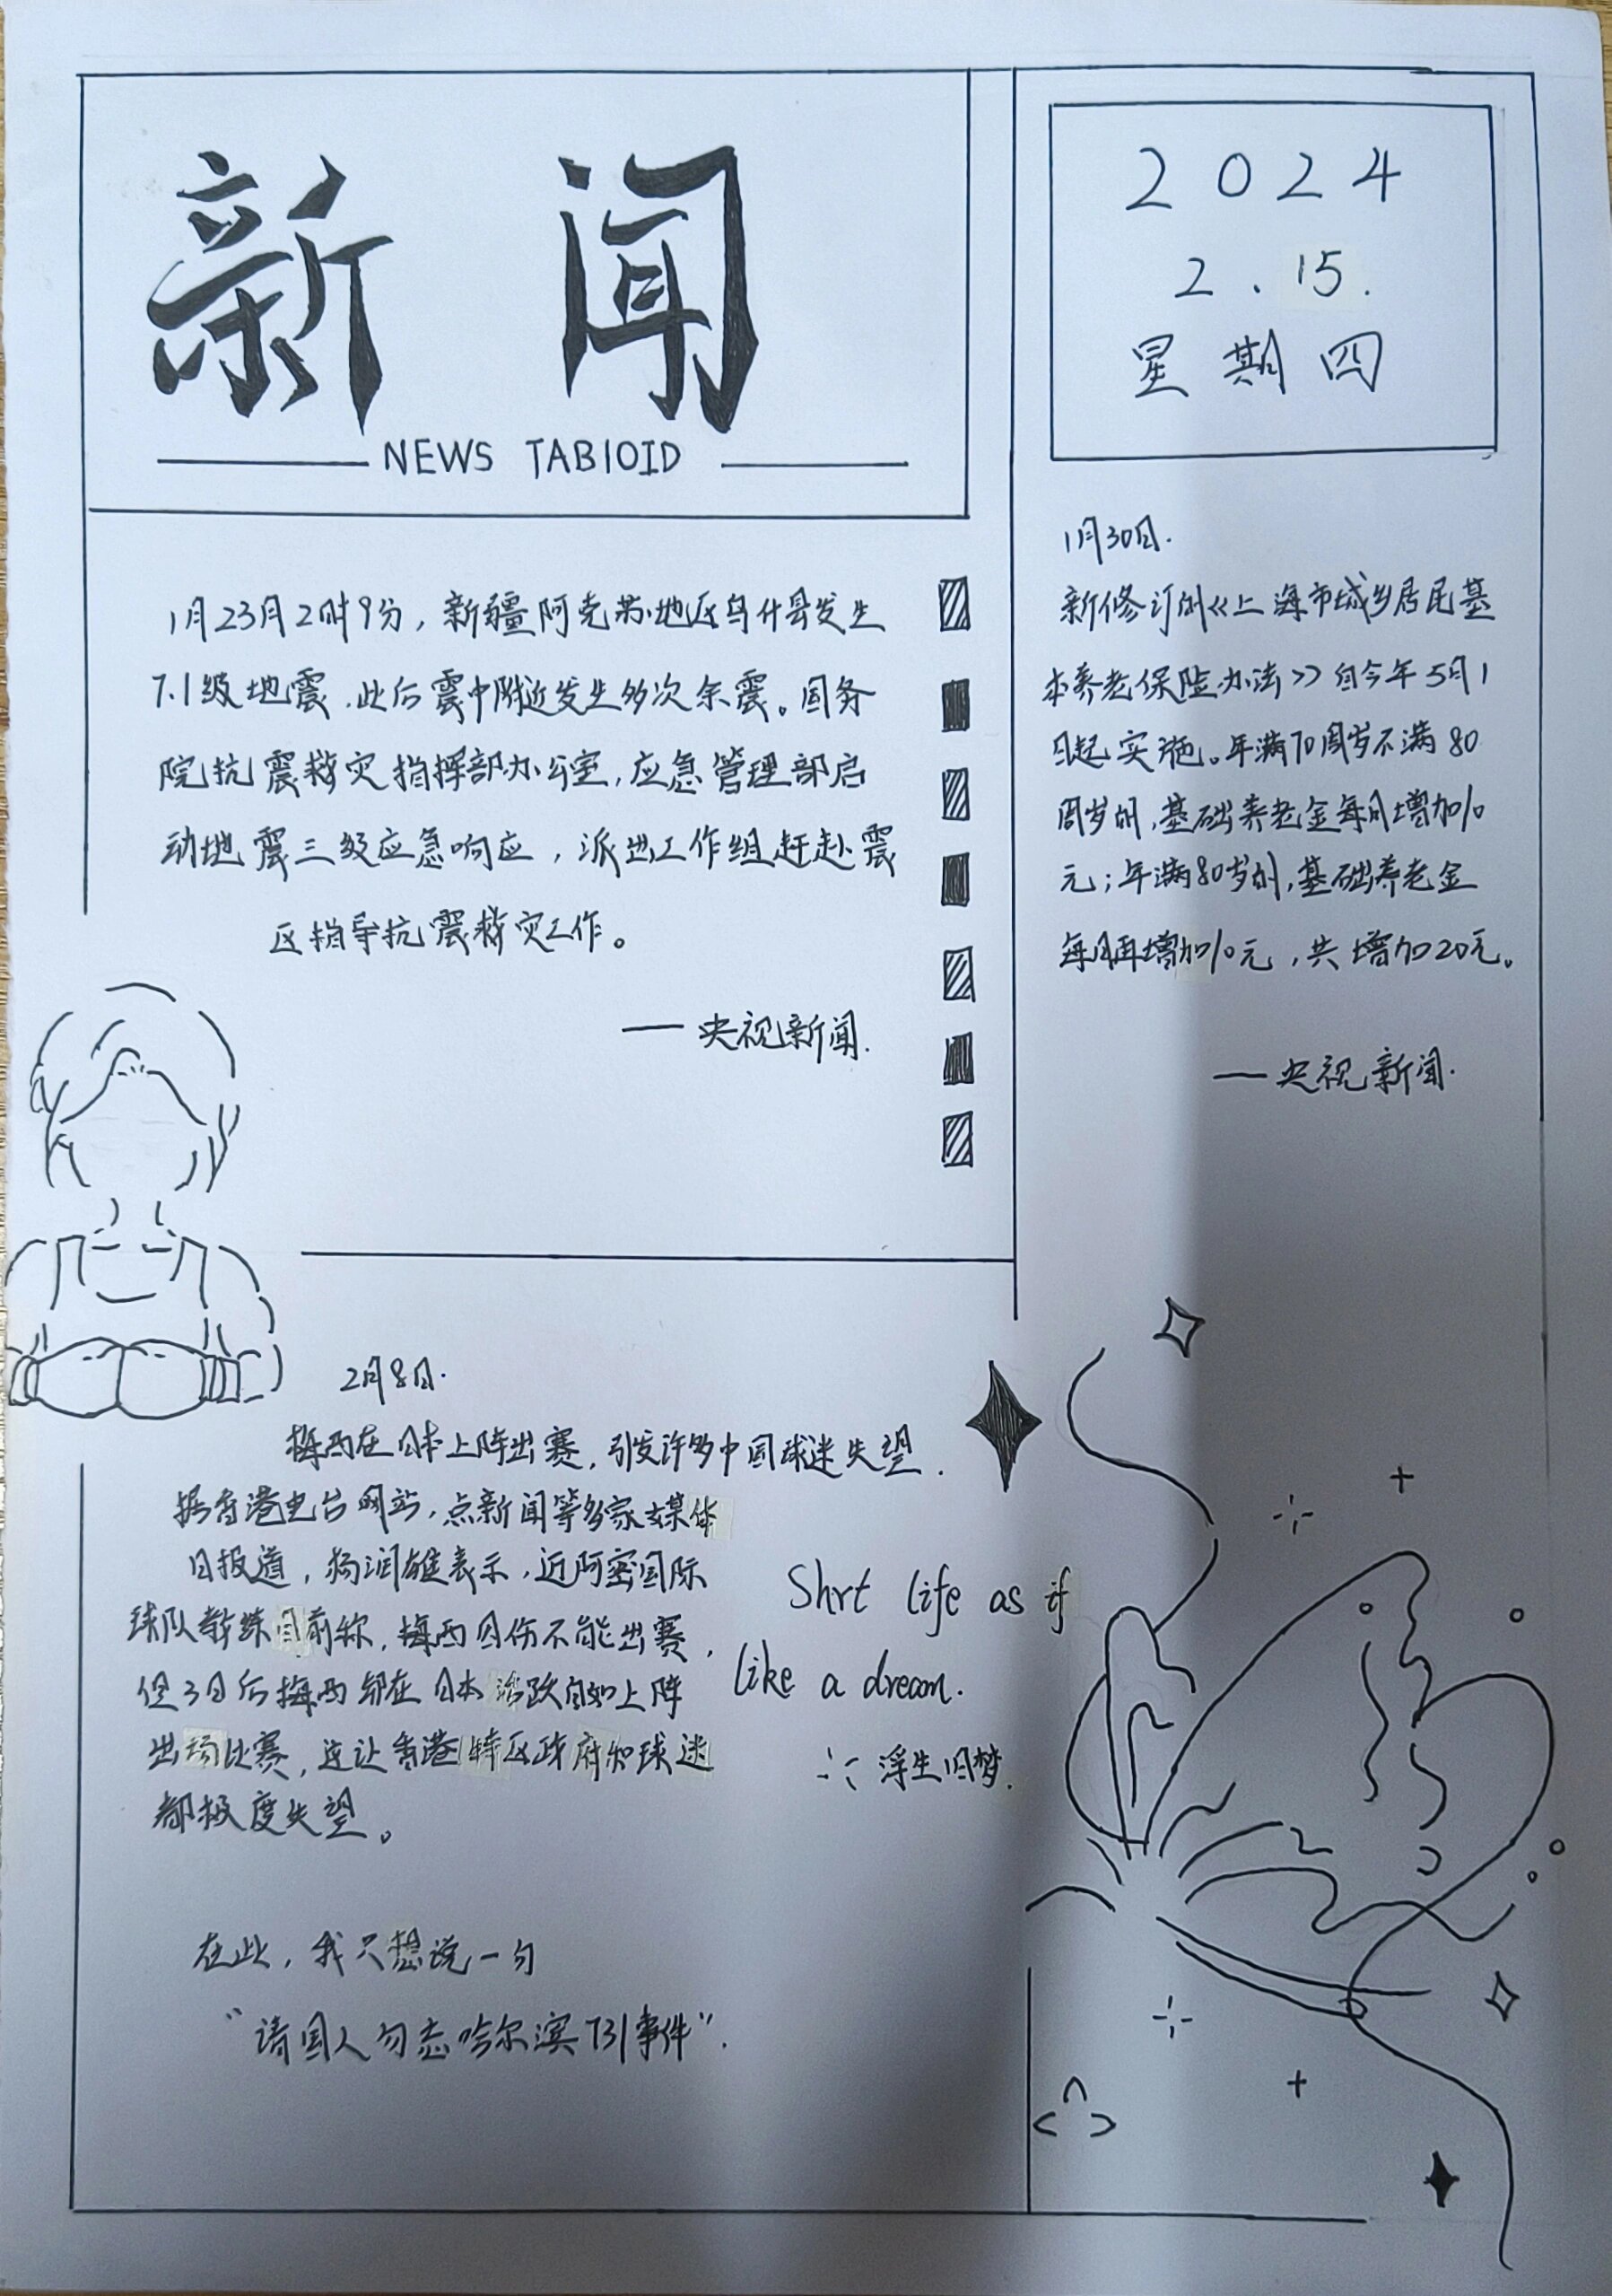 新闻
NEWS TABIOID
2024
2.15.
星期四
1月23月2时9分，新疆阿克苏地区乌什县发生
7.1级地震.此后震中附近发生多次余震。国务
院抗震救灾指挥部办公室，应急管理部启
动地震三级应急响应，派出工作组赶赴震
区指导抗震救灾工作。
——央视新闻.
1月30日.
新修订的《上海市城乡居民基
本养老保险办法》自今年5月1
日起实施。年满70周岁不满80
周岁的，基础养老金每月增加10
元；年满80岁的，基础养老金
每月再增加10元，共增加20元。
——央视新闻.
2月8日.
梅西在日本上阵出赛，引发许多中国球迷失望.
据香港电台网站，点新闻等多家媒体
日报道，杨润雄表示，迈阿密国际
球队教练目前称，梅西因伤不能出赛，
但3日后梅西却在日本活跃自如上阵
出场比赛，这让香港特区政府和球迷
都极度失望。
Shrt life as if
like a dream.
浮生旧梦.
在此，我只想说一句
“请国人勿忘哈尔滨731事件”.